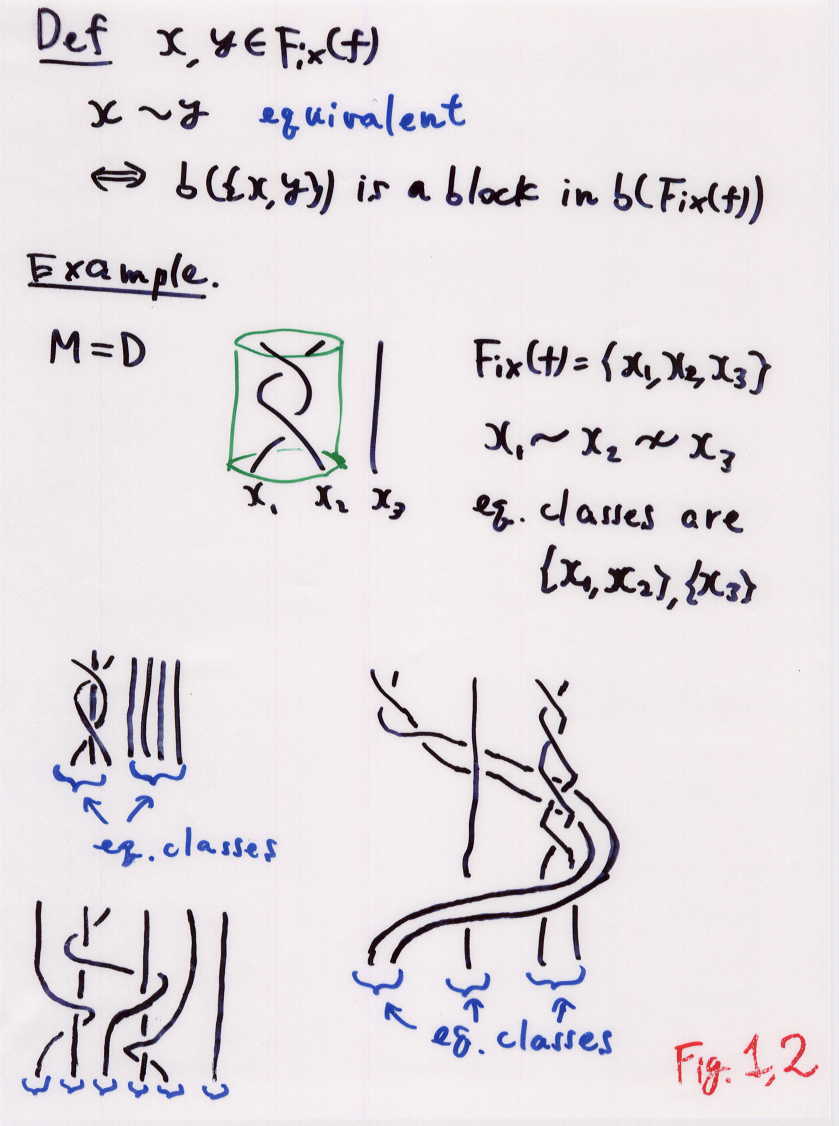 Def x, y ∈ Fix(f)
x ~ y equivalent
⇔ b({x, y}) is a block in b(Fix(f))
Example.
M = D
x₁ x₂ x₃
Fix(f) = {x₁, x₂, x₃}
x₁ ~ x₂ ≁ x₃
eq. classes are
{x₁, x₂}, {x₃}
eq. classes
eq. classes
Fig. 1, 2